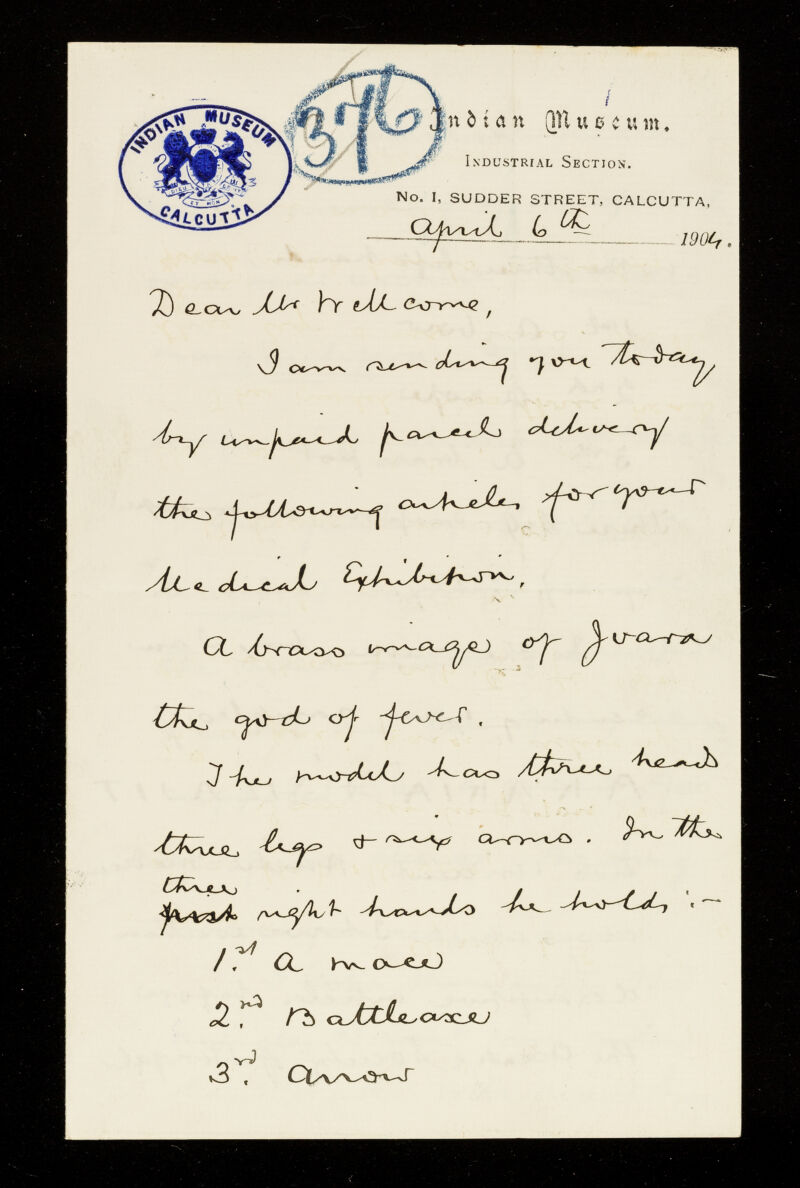 INDIAN MUSEUM
CALCUTTA
376
Indian Museum.
INDUSTRIAL SECTION.
No. 1, SUDDER STREET, CALCUTTA,
April 6th 1904.
Dear Mr Wellcome,
I am sending you today
by unpaid parcel delivery
the following articles for your
Medical Exhibition.
A brass image of Jvara
the god of fever.
The model has three heads
three legs & six arms. In the
three
first right hands he holds :-
1.st A mace
2.nd Battleaxe
3.rd Arrow